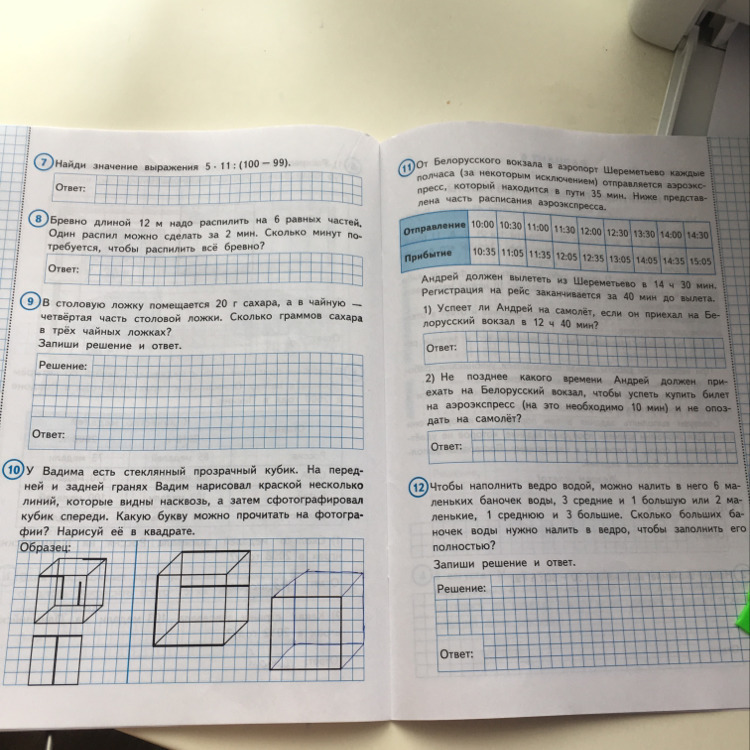 7 Найди значение выражения 5 · 11 : (100 − 99).
Ответ:
8 Бревно длиной 12 м надо распилить на 6 равных частей.
Один распил можно сделать за 2 мин. Сколько минут по-
требуется, чтобы распилить всё бревно?
Ответ:
9 В столовую ложку помещается 20 г сахара, а в чайную —
четвёртая часть столовой ложки. Сколько граммов сахара
в трёх чайных ложках?
Запиши решение и ответ.
Решение:
Ответ:
10 У Вадима есть стеклянный прозрачный кубик. На перед-
ней и задней гранях Вадим нарисовал краской несколько
линий, которые видны насквозь, а затем сфотографировал
кубик спереди. Какую букву можно прочитать на фотогра-
фии? Нарисуй её в квадрате.
Образец:
11 От Белорусского вокзала в аэропорт Шереметьево каждые
полчаса (за некоторым исключением) отправляется аэроэкс-
пресс, который находится в пути 35 мин. Ниже представ-
лена часть расписания аэроэкспресса.
Отправление 10:00 10:30 11:00 11:30 12:00 12:30 13:30 14:00 14:30
Прибытие 10:35 11:05 11:35 12:05 12:35 13:05 14:05 14:35 15:05
Андрей должен вылететь из Шереметьево в 14 ч 30 мин.
Регистрация на рейс заканчивается за 40 мин до вылета.
1) Успеет ли Андрей на самолёт, если он приехал на Бе-
лорусский вокзал в 12 ч 40 мин?
Ответ:
2) Не позднее какого времени Андрей должен при-
ехать на Белорусский вокзал, чтобы успеть купить билет
на аэроэкспресс (на это необходимо 10 мин) и не опоз-
дать на самолёт?
Ответ:
12 Чтобы наполнить ведро водой, можно налить в него 6 ма-
леньких баночек воды, 3 средние и 1 большую или 2 ма-
ленькие, 1 среднюю и 3 большие. Сколько больших ба-
ночек воды нужно налить в ведро, чтобы заполнить его
полностью?
Запиши решение и ответ.
Решение:
Ответ: